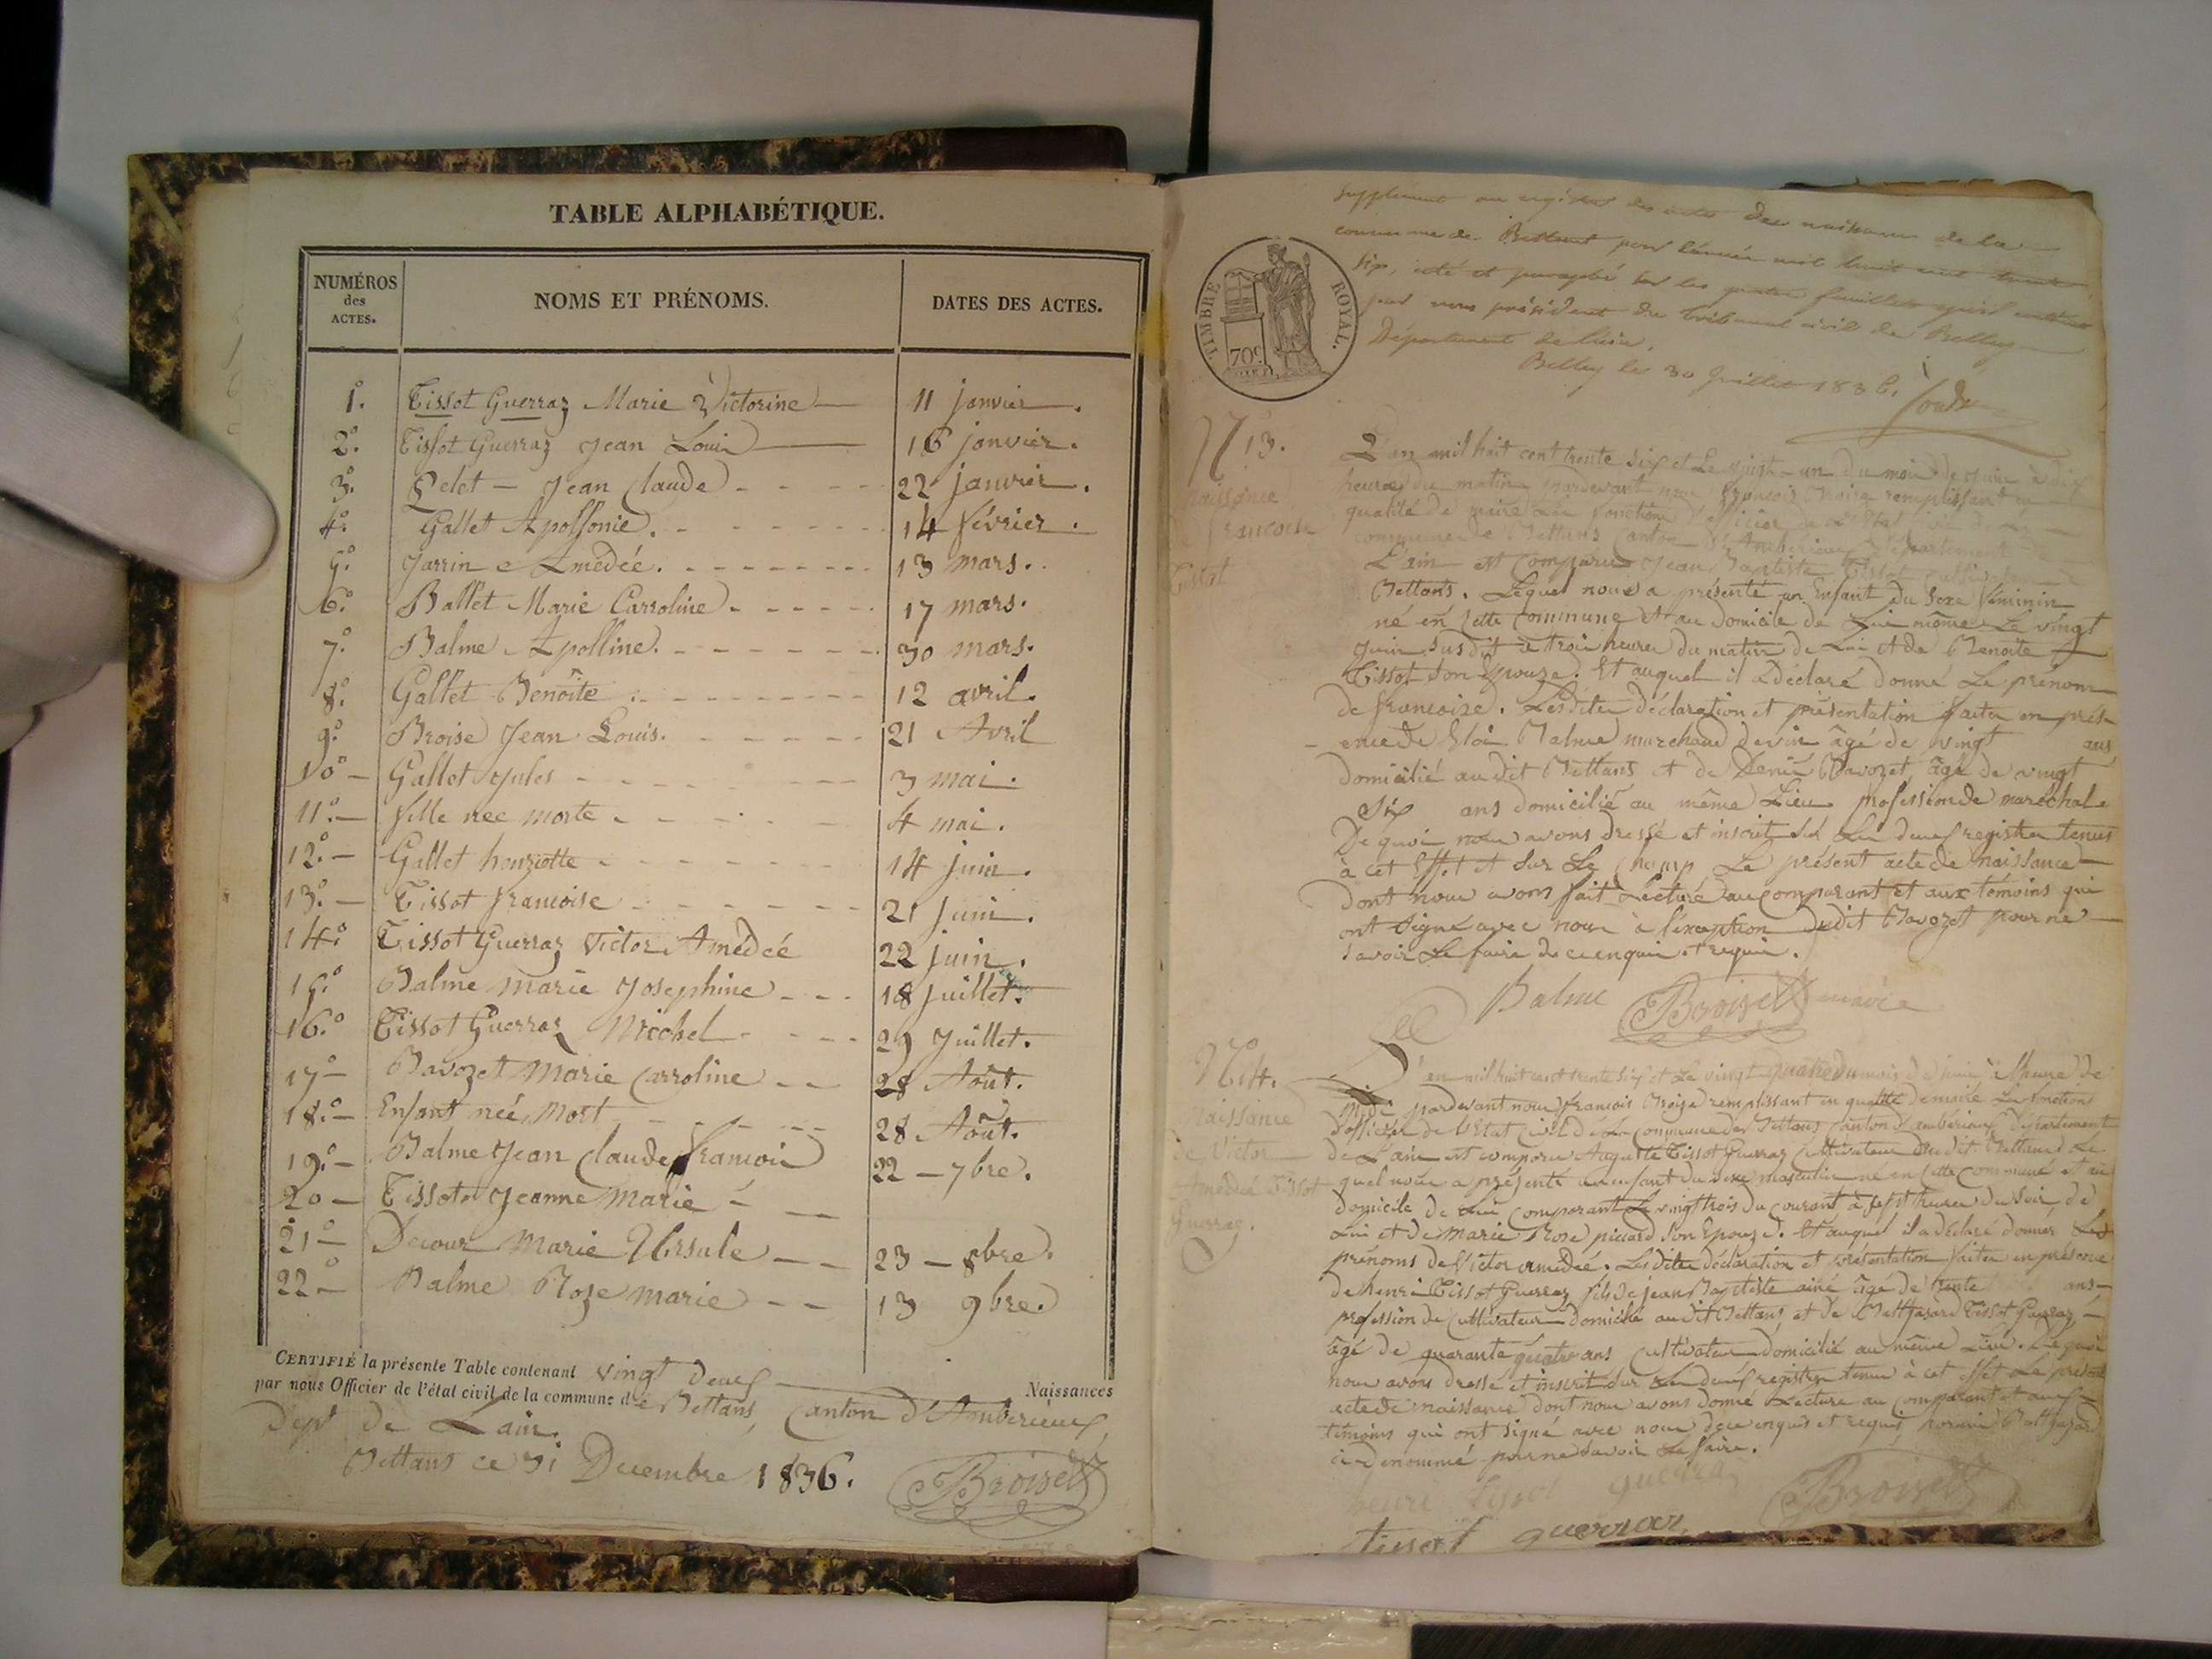 TABLE ALPHABÉTIQUE.
NUMÉROS des ACTES. NOMS ET PRÉNOMS. DATES DES ACTES.
1.° Tissot Guerraz Marie Victorine 11 janvier.
2.° Tissot Guerraz Jean Louis 16 janvier.
3.° Jean Claude 22 janvier.
4.° Gallet Apolsonie. 14 février.
5.° Jarrin e Amédée. 13 mars.
6.° Ballet Marie Carroline 17 mars.
7.° Balme Apolline. 30 mars.
8.° Gallet Benoîte 12 avril.
9.° Broise Jean Louis. 21 Avril
10° Gallet Jules 3 mai.
11.° fille nee morte 4 mai.
12.° Gallet henriotte 14 juin.
13.° Tissot francoise 21 juin.
14.° Tissot Guerraz Victor Amédeé 22 juin.
15.° Balme marie Josephine 18 Juillet.
16.° Tissot Guerraz Michel 29 Juillet.
17 Bavozet Marie Carroline 28 Août.
18.° Enfant neé, Mort 28 Août.
19.° Balme Jean Claude francois 22 - 7bre.
20 Tissot Jeanne Marie
21° Decour Marie Ursule 23 - 8bre.
22° Balme Roze marie 13 9bre.
CERTIFIÉ la présente Table contenant vingt deux Naissances
par nous Officier de l'état civil de la commune de Bettans, Canton d'Ambérieux,
Dept de Lain.
Bettans ce 31 Decembre 1836.
Broise
supplément au registre des actes des naissances de la
commune de Bettant pour l'année mil huit cent trente
six, coté et paraphé sur les quatre feuillets qu'il contient
par nous président du tribunal civil de Belley
Département de l'ain.
Belley le 30 Juillet 1836.
TIMBRE ROYAL.
70c
N° 13.
Naissance
de francoise
Tissot
L'an mil huit cent trente six et Le vingt-un du mois de juin à dix
heures du matin pardevant nous francois Broise remplissant en
qualité de maire Les fonctions d'officier de L'Etat civil de La
commune de Bettans Canton d'Ambérieux Département de
L'ain est comparu Jean Baptiste Tissot
Bettans. Lequel nous a présenté un Enfant du Sexe féminin
né en Cette Commune et au Domicile de Lui même Le vingt
juin susdit à trois heures du matin de Lui et de Benoite
Tissot son Epouze. Et auquel il a déclaré donné Le prénom
de francoise. Lesdites déclaration et présentation faites en prés-
ence de Eloi Balme marchand de vin âgé de vingt ans
domicilié au dit Bettans et de Denis Bavozet âgé de vingt
Six ans domicilié au même Lieu profession de maréchal.
De quoi nous avons dressé et inscrit sur Les deux registres tenus
à cet Effet et sur Le Champ Le présent acte de Naissance
dont nous avons fait Lecture au Comparant et aux témoins qui
ont signé avec nous à l'exception dudit Bavozet pour ne
savoir Le faire de ce enquis et requis.
Balme Broise maire
N° 14.
Naissance
de Victor
Amédeé Tissot
Guerraz.
L'an mil huit cent trente Six et Le vingt quatre du mois de juin à l'heure de
Midi pardevant nous francois Broise remplissant en qualité de maire Les fonctions
d'officier de L'Etat Civil de La commune de Bettans Canton d'ambérieux Département
de L'ain est comparu Auguste Tissot Guerraz Cultivateur dudit Bettans Le
quel nous a présenté un enfant du sexe masculin né en Cette Commune et au
domicile de Lui Comparant Le vingt trois du courant à sept heures du soir de
Lui et de Marie Rose picard Son Epouze. Et auquel il a déclaré donner Les
prénoms de Victor amédeé. Lesdites déclaration et présentation faites en présence
de henri Tissot Guerraz fils de jean Baptiste ainé âgé de trente ans
profession de Cultivateur domicilié au dit Bettans, et de Balthazard Tissot Guerraz
âgé de quarante quatre ans Cultivateur domicilié au même Lieu. De quoi
nous avons dressé et inscrit sur Les deux registres tenus à cet effet Le présent
acte de naissance dont nous avons donné Lecture au Comparant et aux
témoins qui ont signé avec nous de ce enquis et requis hormis Balthazard
ci-Dénommé pour ne savoir Le faire.
henri tissot guerraz Broise
tissot guerraz